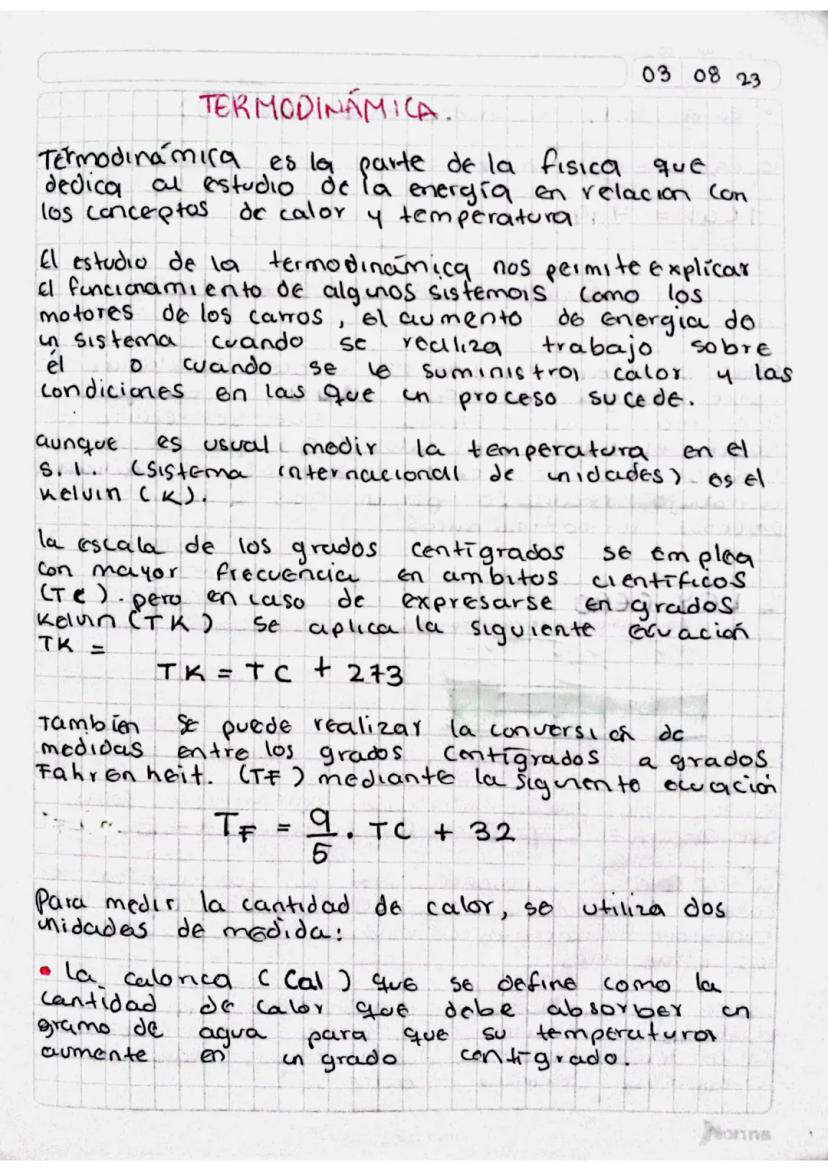 03 08 23
TERMODINÁMICA.
Termodinámica es la parte de la fisica que
dedica al estudio de la energía en relacion con
los conceptos de calor y temperatura.
El estudio de la termodinámica nos permite explicar
el funcionamiento de algunos sistemas como los
motores de los carros, el aumento de energia de
un sistema cuando se realiza trabajo sobre
él o cuando se le suministra calor y las
condiciones en las que un proceso sucede.
aunque es usual medir la temperatura en el
S.I. (sistema internacional de unidades) es el
Kelvin (K).
la escala de los grados centígrados se emplea
con mayor frecuencia en ambitos científicos
(TC). pero en caso de expresarse en grados
Kelvin (TK) se aplica la siguiente ecuación
TK =
TK = TC + 273
También se puede realizar la conversión de
medidas entre los grados centígrados a grados
Fahrenheit. (TF) mediante la siguiente ecuación
TF = 9/5 . TC + 32
Para medir la cantidad de calor, se utiliza dos
unidades de medida:
• La caloria (Cal) que se define como la
cantidad de calor que debe absorber un
gramo de agua para que su temperatura
aumente en un grado centigrado.
Norma